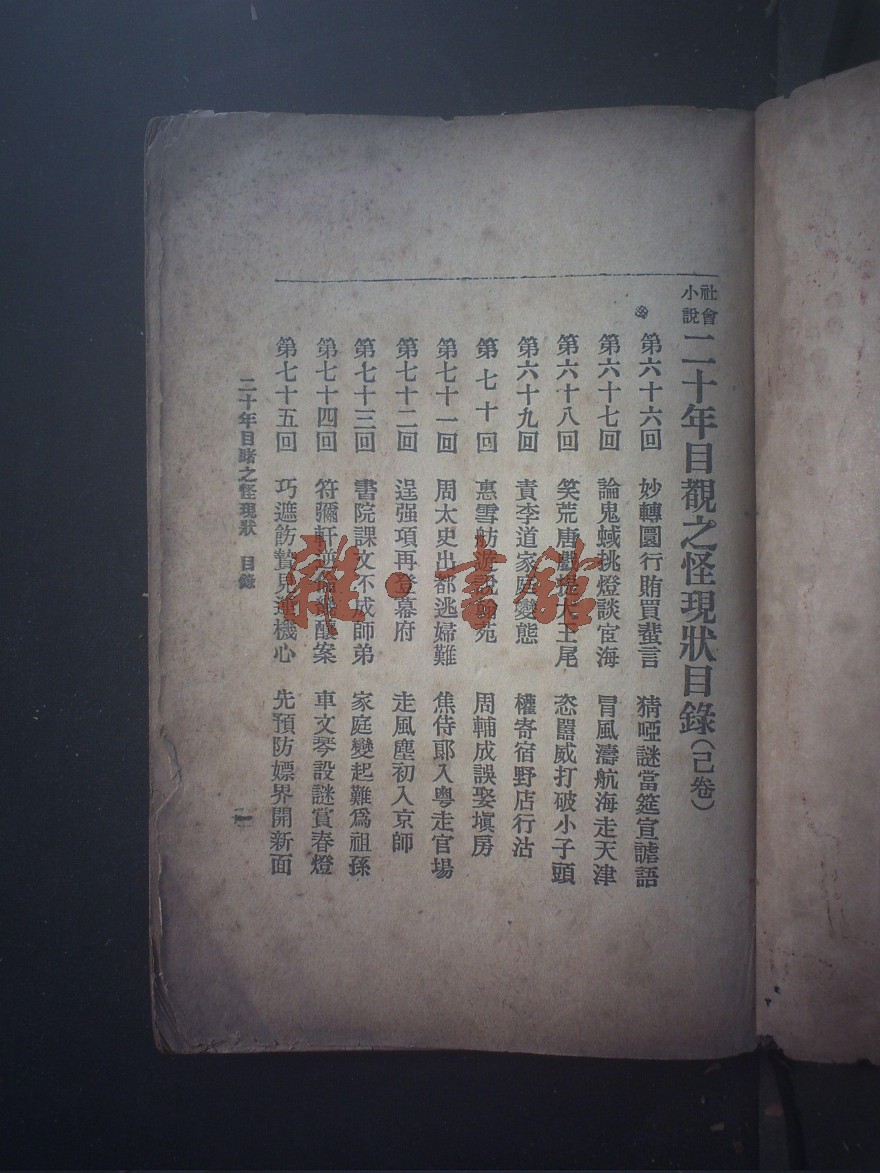 社會
小說
二十年目覩之怪現狀目錄（己卷）
第六十六回 妙轉圜行賄買蜚言 猜啞謎當筵宣謔語
第六十七回 論鬼蜮挑燈談宦海 冒風濤航海走天津
第六十八回 笑荒唐戲提大王尾 恣囂威打破小子頭
第六十九回 責孝道家庭變態 權寄宿野店行沽
第七十回 惠雪舫遊說翰苑 周輔成誤娶塡房
第七十一回 周太史出都逃婦難 焦侍郞入粵走官場
第七十二回 逞强項再登幕府 走風塵初入京師
第七十三回 書院課文不成師弟 家庭變起難爲祖孫
第七十四回 符彌軒逆倫幾釀案 車文琴設謎賞春燈
第七十五回 巧遮飭贄見運機心 先預防嫖界開新面
二十年目睹之怪現狀 目錄 一
雜·書館